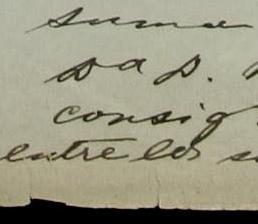 suma
pa p.
consig
entre los s